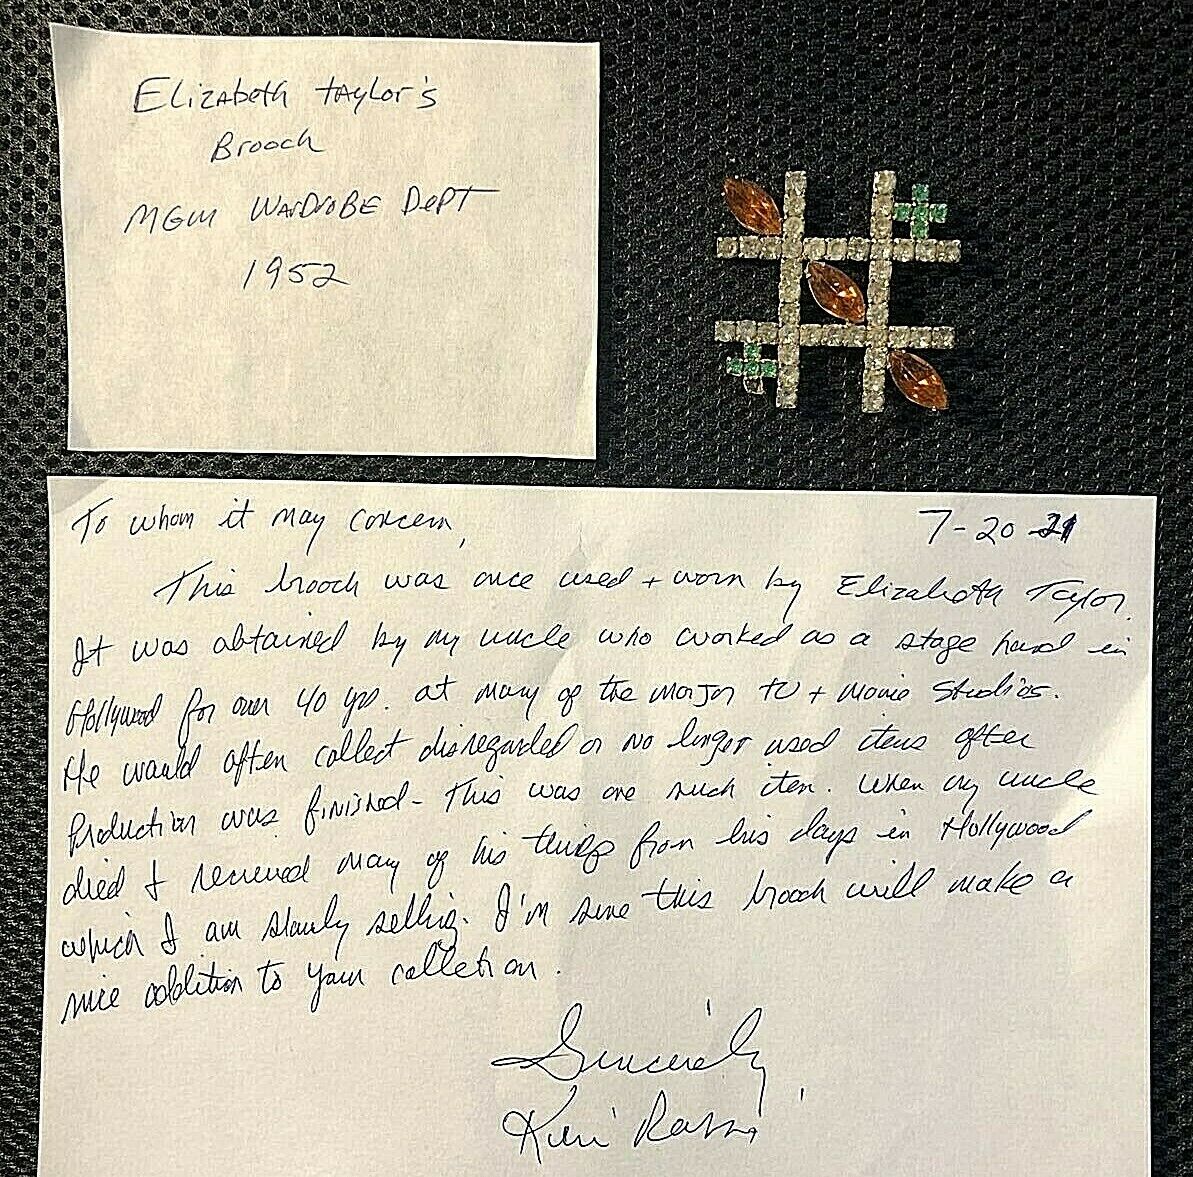 Elizabeth Taylor's
Brooch
MGM Wardrobe Dept
1952
To whom it may concern,
7-20 21
This brooch was once used + worn by Elizabeth Taylor.
It was obtained by my uncle who worked as a stage hand in
Hollywood for over 40 yrs. at many of the major TV + movie studios.
He would often collect disregarded or no longer used items after
production was finished - This was one such item. When my uncle
died I recieved many of his things from his days in Hollywood
which I am slowly selling. I'm sure this brooch will make a
nice addition to your collection.
Sincerely